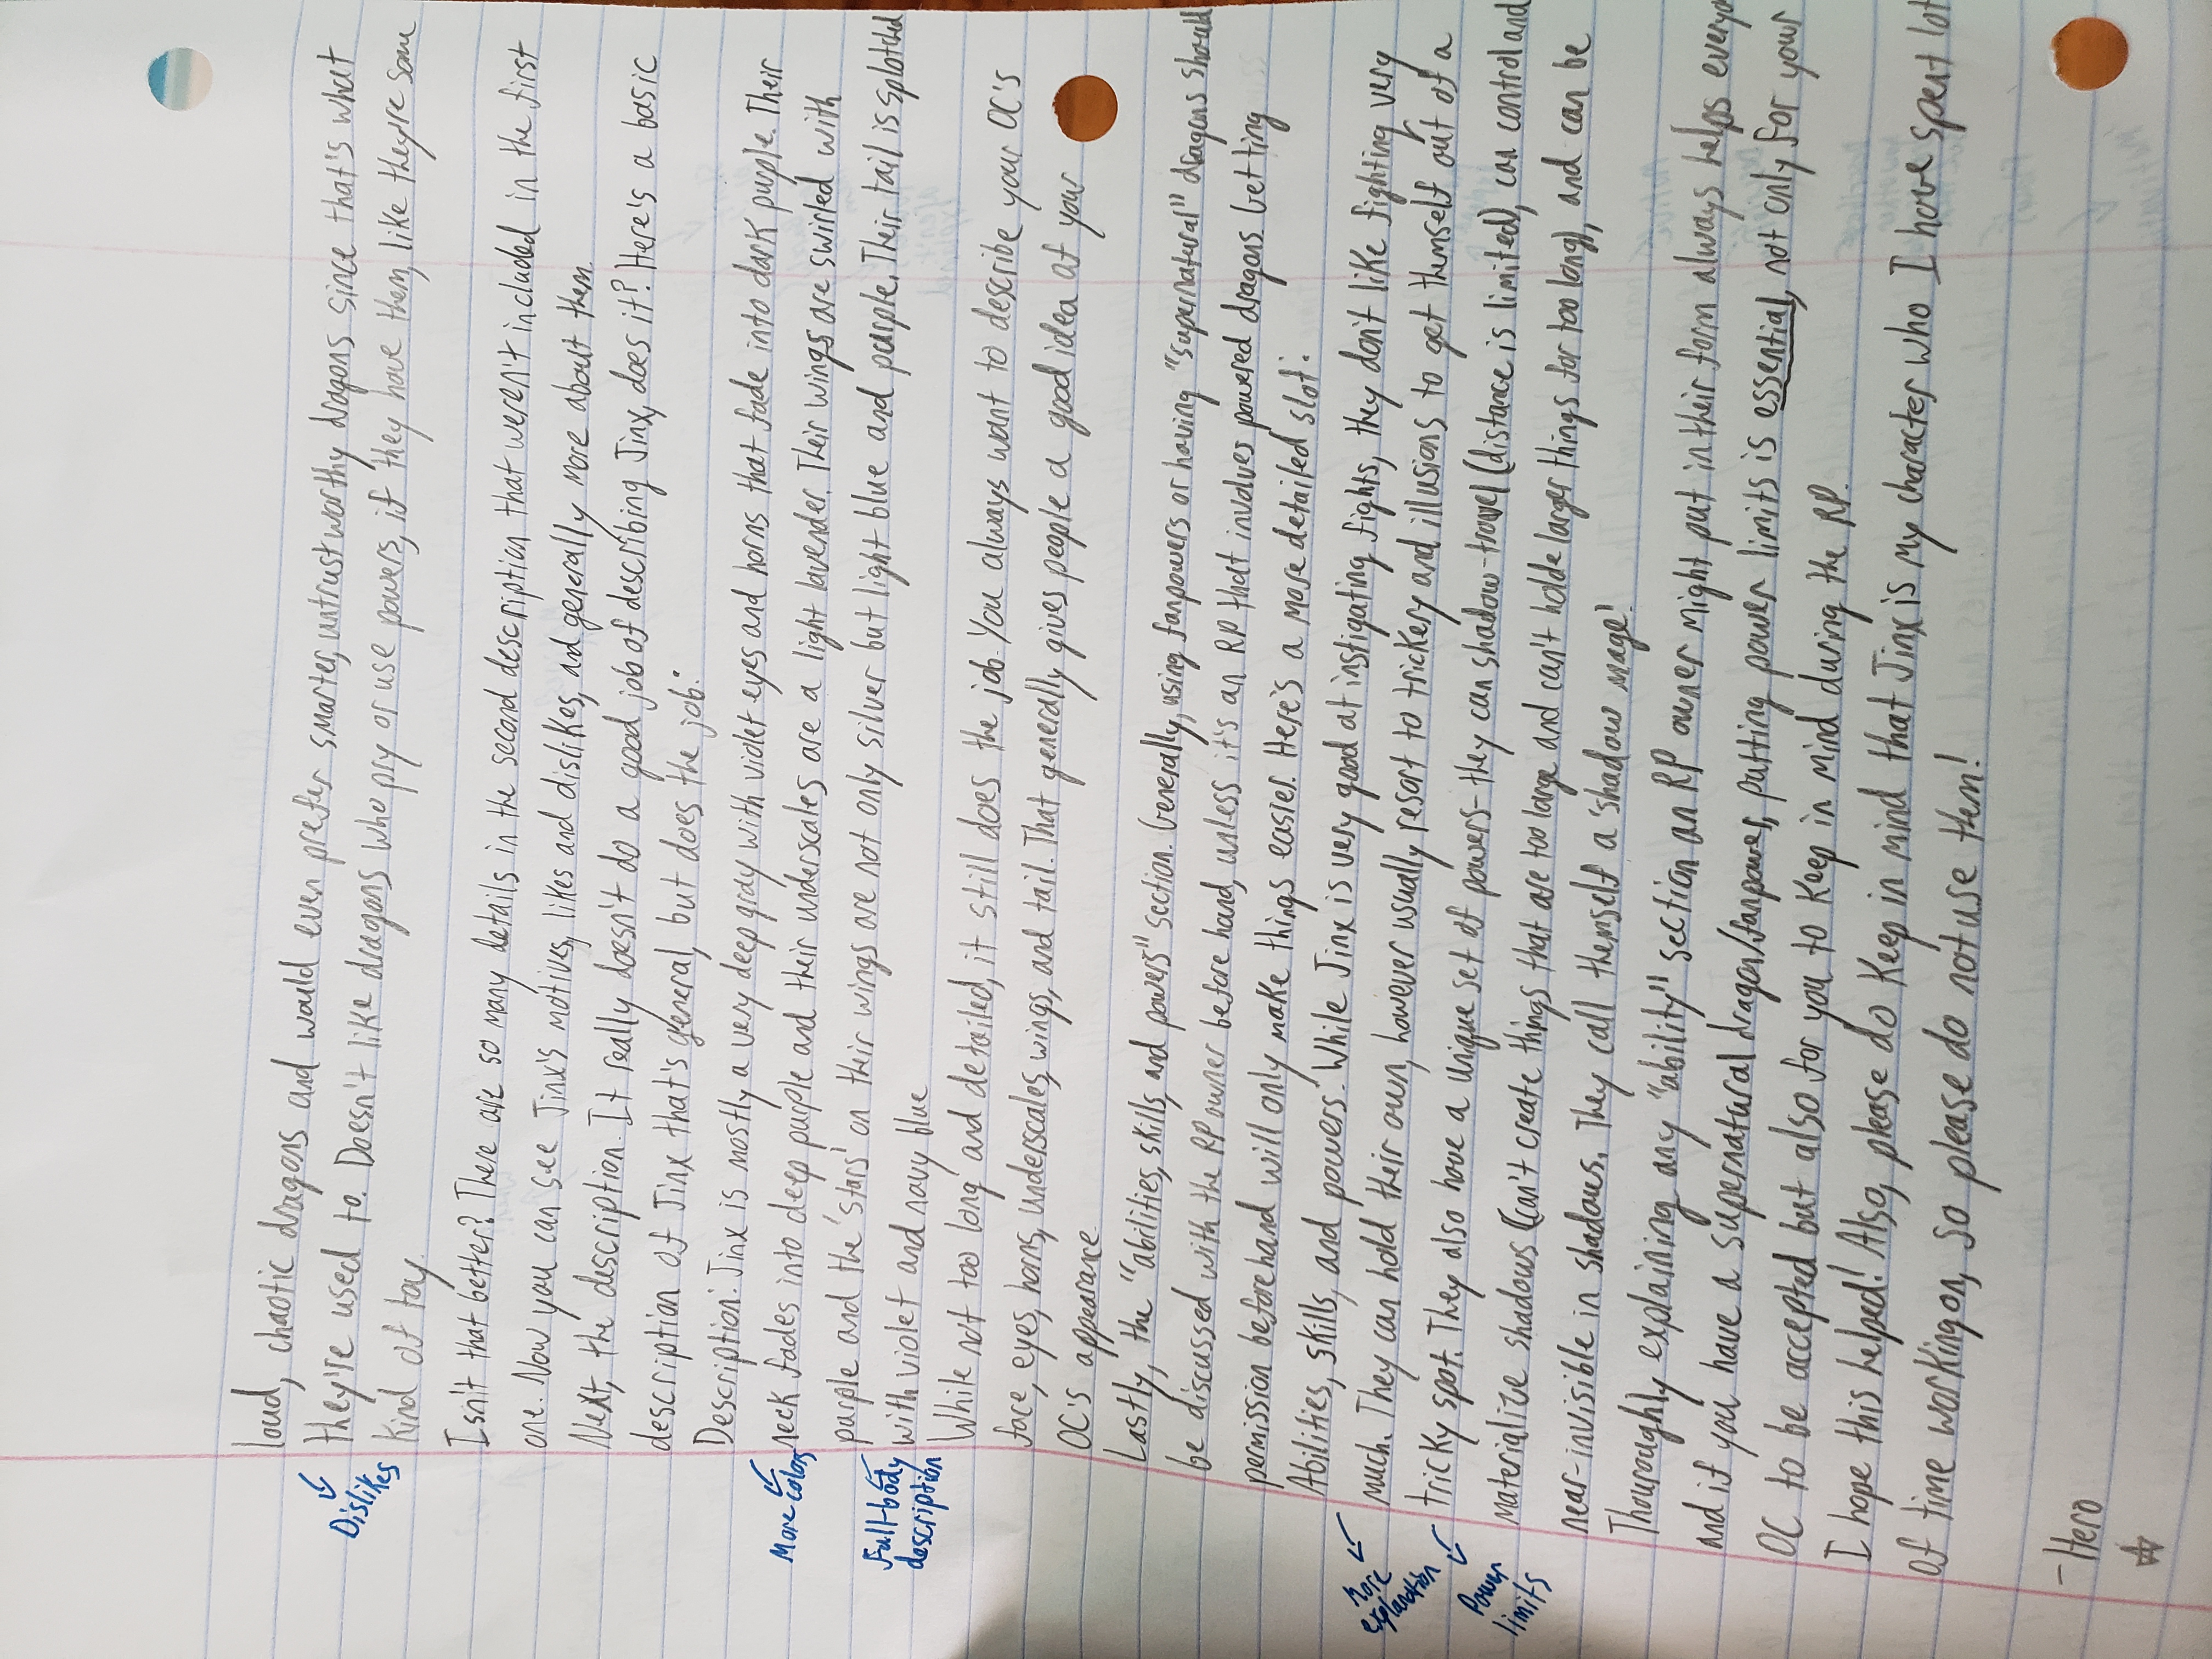 loud, chaotic dragons and would even prefer smarter, untrustworthy dragons since that's what
they're used to. Doesn't like dragons who pry or use powers, if they have them, like they're some
kind of toy.
Dislikes
Isn't that better? There are so many details in the second description that weren't included in the first
one. Now you can see Jinx's motives, likes and dislikes, and generally more about them.
Next, the description. It really doesn't do a good job of describing Jinx, does it? Here's a basic
description of Jinx that's general, but does the job:
Description: Jinx is mostly a very deep gray with violet eyes and horns that fade into dark purple. Their
neck fades into deep purple and their underscales are a light lavender. Their wings are swirled with
More colors
purple and the 'stars' on their wings are not only silver but light blue and purple. Their tail is splotched
with violet and navy blue
Full-body
description
While not too long and detailed, it still does the job. You always want to describe your OC's
face, eyes, horns, underscales, wings, and tail. That generally gives people a good idea at your
OC's appearance.
Lastly, the "abilities, skills, and powers" section. Generally, using fanpowers or having "supernatural" dragons should
be discussed with the RP owner before hand, unless it's an RP that involves powered dragons. Getting
permission beforehand will only make things easier. Here's a more detailed slot:
Abilities, skills, and powers: While Jinx is very good at instigating fights, they don't like fighting very
much. They can hold their own, however usually resort to trickery and illusions to get themself out of a
More
explanation
tricky spot. They also have a unique set of powers- they can shadow-travel (distance is limited), can control and
Power
limits
materialize shadows (can't create things that are too large and can't holde larger things for too long), and can be
near-invisible in shadows. They call themself a 'shadow mage'.
Thouroughly explaining any "ability" section an RP owner might put in their form always helps everyo
and if you have a supernatural dragon/fanpower, putting power limits is essential, not only for your
OC to be accepted but also for you to keep in mind during the RP.
I hope this helped! Also, please do keep in mind that Jinx is my character who I have spent lot
of time working on, so please do not use them!
-Hero